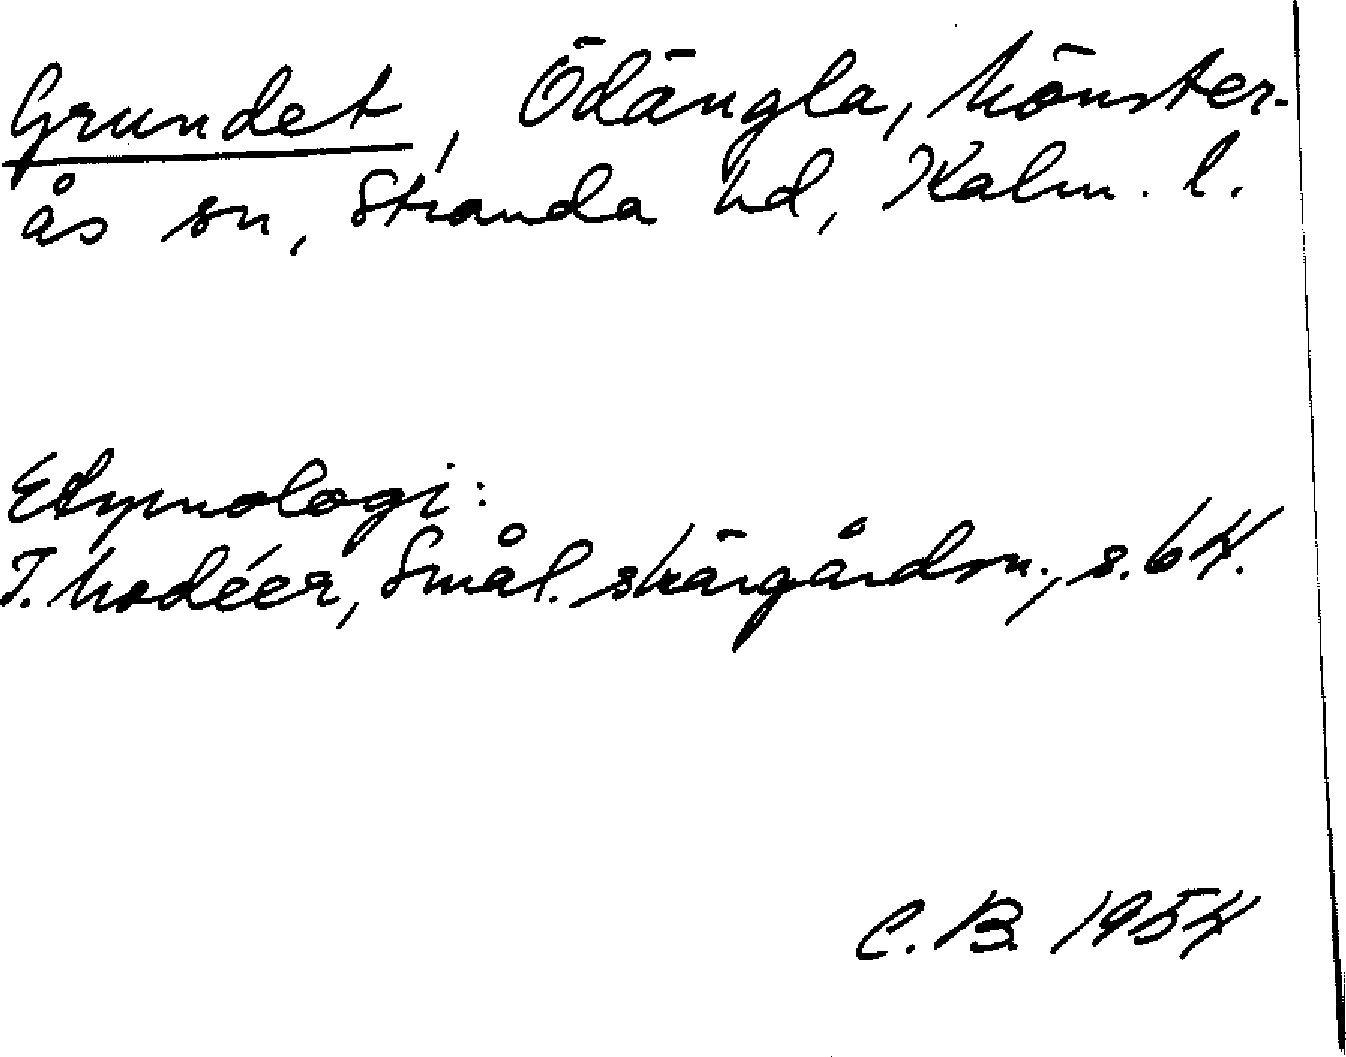 Grundet, Ödängla, Mönster-
ås sn, Stranda hd, Kalm. l.
Etymologi:
I. Modéer, Smål. skärgårdsn., s. 64.
C. B. 1954